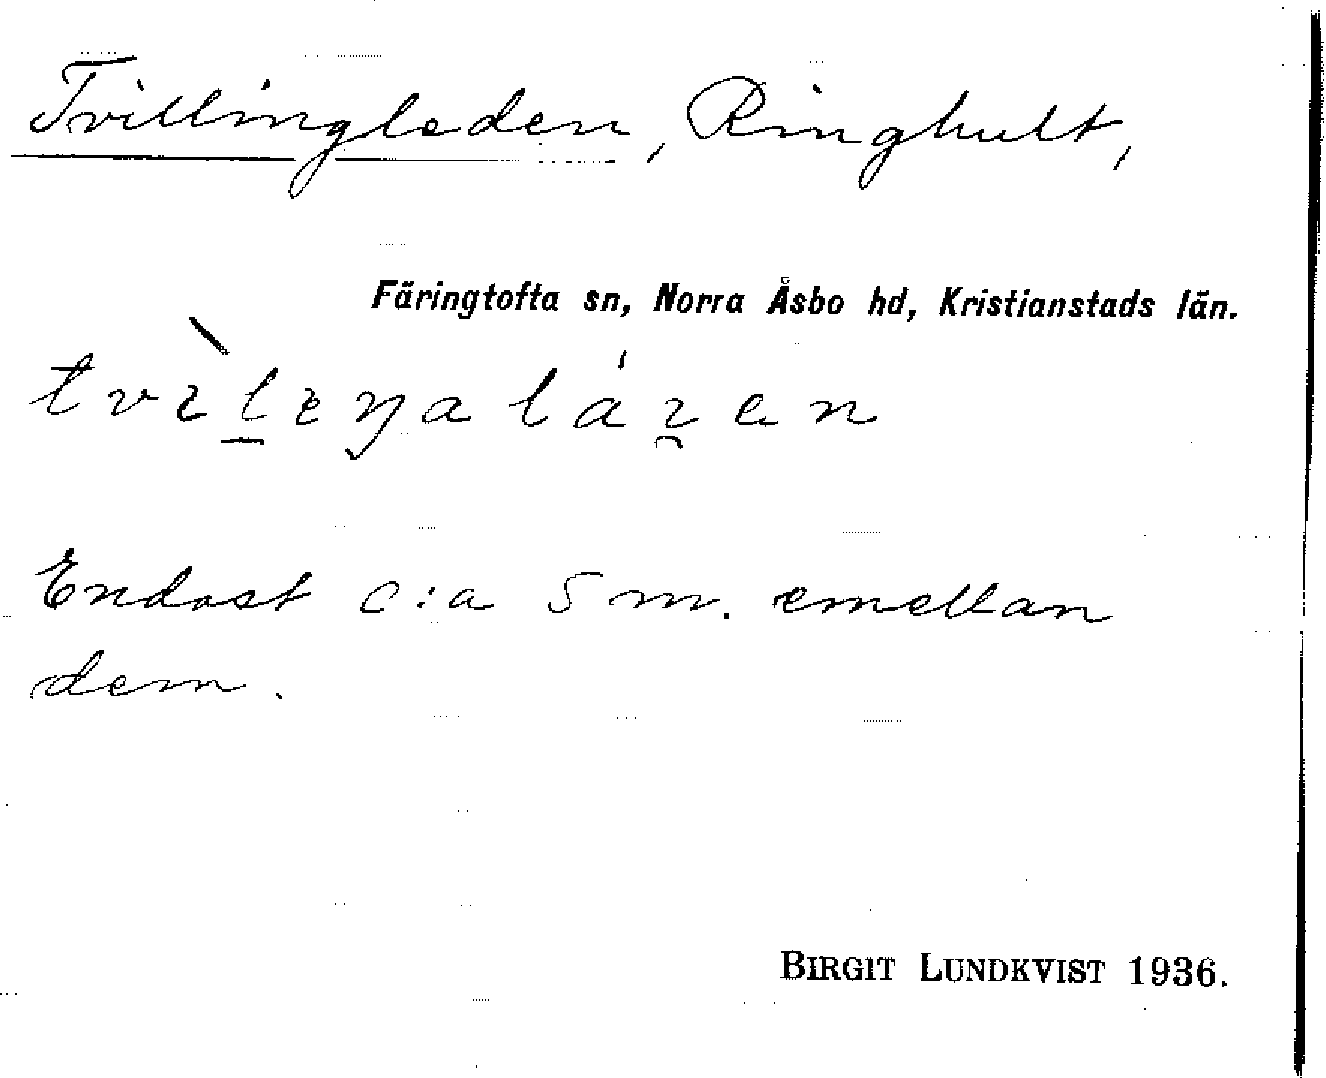 Tvillingleden, Ringhult,
Färingtofta sn, Norra Åsbo hd, Kristianstads län.
Endast c:a 5 m. emellan
dem.
BIRGIT LUNDKVIST 1936.